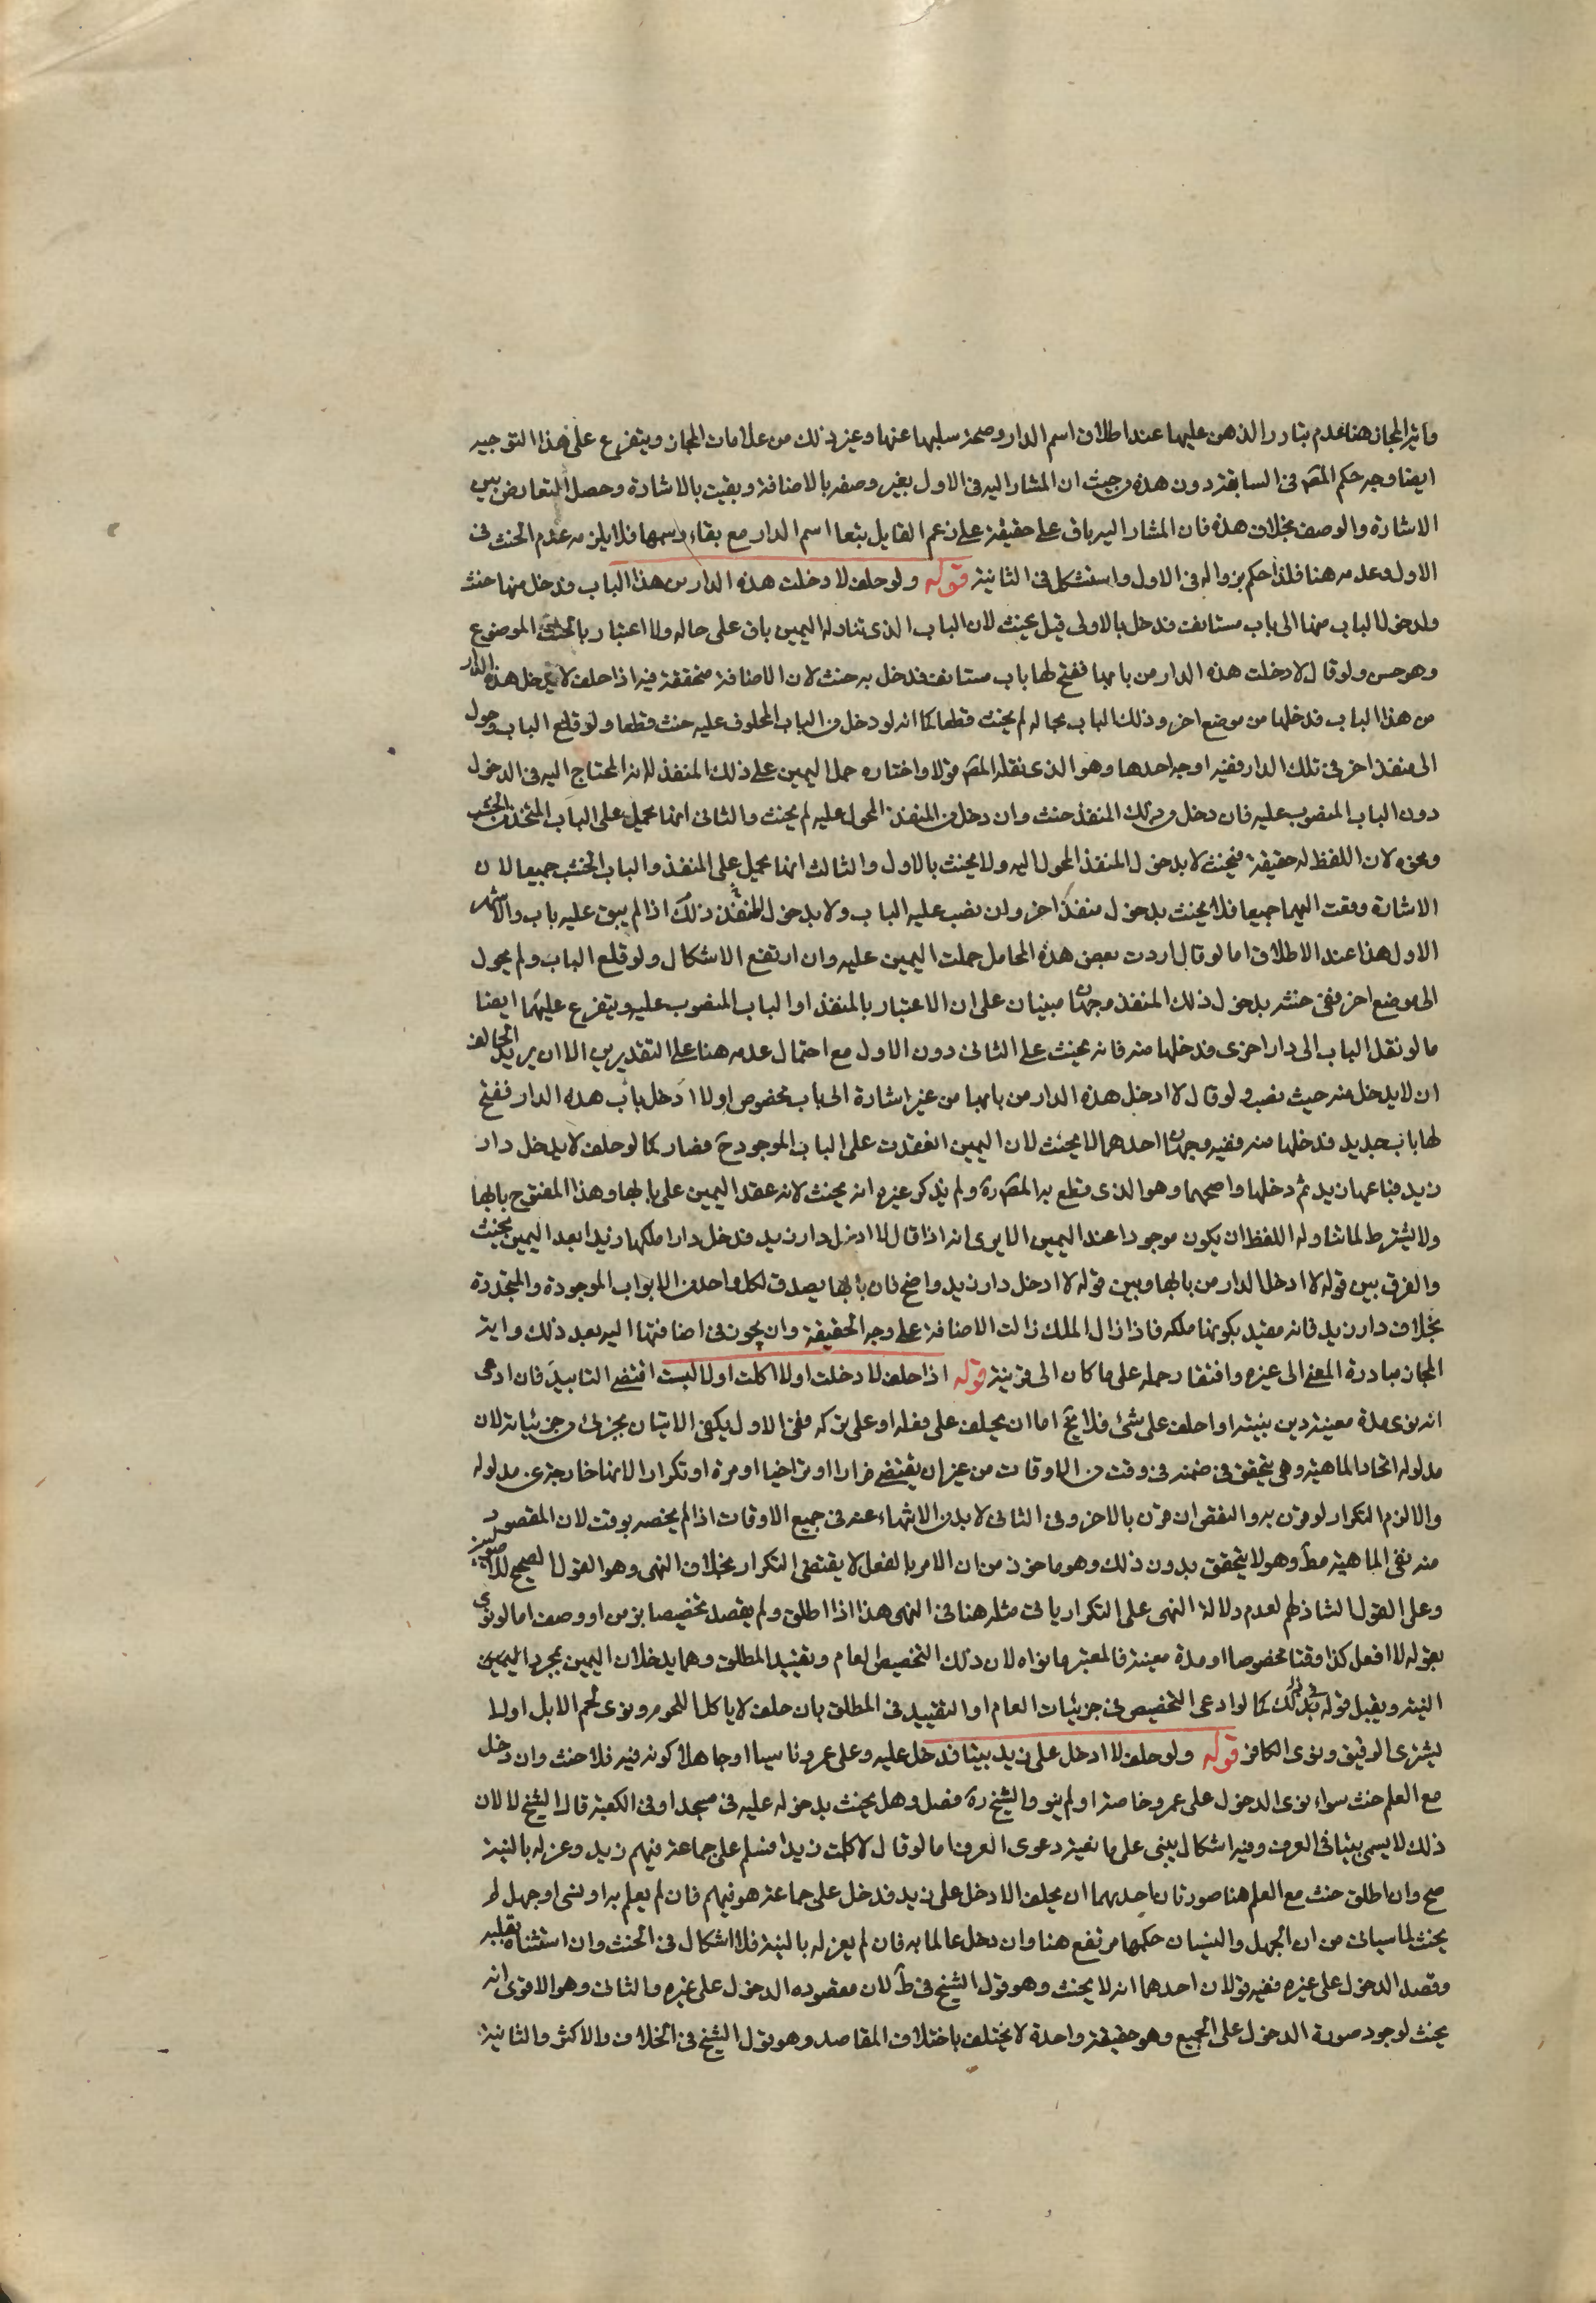 وآية المجاز هنا عدم تبادر الذهن عليها عند اطلاق اسم الدار وصحة سلبها عنها وغير ذلك من علامات المجاز ويتفرع على هذا التوجيه
ايضا وجه حكم المصَ فى السابقة دون هذه من حيث ان المشار اليه فى الاول بغير وصفه بالاضافة وبقيت بالاشارة وحصل التعارض بين
الاشارة والوصف بخلاف هذه فان المشار اليه باق على حقيقة على زعم القايل بتعا اسم الدار مع بقاء رسمها فلا يلزمه عدم الحنث فى
الاول وعدمه هنا فلذا حكم بزواله فى الاول واستشكل فى الثانية قوله ولو حلف لا دخلت هذه الدار من هذا الباب فدخل منها حنث
ولو حول الباب عنها الى باب مستانف فدخل بالاولى قيل يحنث لان الباب الذى تناوله اليمين باق على حاله ولا اعتبار بالخشب الموضوع
وهو حسن ولو قال لا دخلت هذه الدار من بابها ففتح لها باب مستانف فدخل به حنث لان الاضافة متحققة فيه اذا حلف لا يدخل هذه الدار
من هذا الباب فدخلها من موضع اخر وذلك الباب بحاله لم يحنث قطعا كما انه لو دخل من الباب المحلوف عليه حنث قطعا ولو قلع الباب وحول
الى منفذ اخر فى تلك الدار ففيه اوجه احدها وهو الذى نقله المصَ قولا واختاره حمل اليمين على ذلك المنفذ لانه المحتاج اليه فى الدخول
دون الباب المنصوب عليه فان دخل من ذلك المنفذ حنث وان دخل من المنفذ المحول عليه لم يحنث والثانى انها تحمل على الباب المتخذ من الخشب
ونحوه لان اللفظ له حقيقة فيحنث لا بدخول المنفذ المحول اليه ولا يحنث بالاول والثالث انها تحمل على المنفذ والباب الخشب جميعا لان
الاشارة وقعت اليهما جميعا فلا يحنث بدخول منفذ اخر وان نصب عليه الباب ولا بدخول المنفذ ذلك اذا لم يبق عليه باب والاشهر
الاول هذا عند الاطلاق اما لو قال اردت بعض هذه المحامل حملت اليمين عليه وان ارتفع الاشكال ولو قلع الباب ولم يحول
الى موضع اخر ففى حنثه بدخول ذلك المنفذ وجهان مبنيان على ان الاعتبار بالمنفذ او الباب المنصوب عليه ويتفرع عليهما ايضا
ما لو نقل الباب الى دار اخرى فدخلها منه فانه يحنث على الثانى دون الاول مع احتمال عدمه هنا على التقديرين الا ان يريد الحالف
ان لا يدخل منه حيث نصب ولو قال لا ادخل هذه الدار من بابها من غير اشارة الى باب مخصوص او لا ادخل باب هذه الدار ففتح
لها باب جديد فدخلها منه ففيه وجهان احدهما لا يحنث لان اليمين انعقدت على الباب الموجود حَ فصار كما لو حلف لا يدخل دار
زيد فباعها زيد ثم دخلها واصحهما وهو الذى قطع به المصَ ره ولم يذكر غيره انه يحنث لانه عقد اليمين على بابها وهذا المفتوح بابها
ولا يشترط لما تناوله اللفظ ان يكون موجودا عند اليمين الا يرى انه اذا قال لا ادخل دار زيد فدخل دارا ملكها زيد بعد اليمين يحنث
والفرق بين قوله لا ادخل الدار من بابها وبين قوله لا ادخل دار زيد واضح فان بابها يصدق لكل واحد من الابواب الموجودة والمتجددة
بخلاف دار زيد فانه مقيد بكونها ملكه فاذا زال الملك زالت الاضافة على وجه الحقيقة وان يجوز فى اضافتها اليه بعد ذلك واية
المجاز مبادرة المعنى الى غيره وافتقار حمله على ما كان الى قرينة قوله اذا حلف لا دخلت او لا اكلت او لا لبست اقتضى التابيد فان ادعى
انه نوى مدة معينة دين بنيته اذا حلف على شئ فلا يخ اما ان يحلف على فعله او على تركه ففى الاول يكفى الاتيان بجزئى من جزئياته لان
مدلوله اتحاد الماهية وهى يتحقق فى ضمنه فى وقت من الاوقات من غير ان يقتضى فرادا او تراخيا او مرة او تكرارا لانها خارجة عن مدلوله
والا لزم التكرار لو قرن به والنقض ان قرن بالاخر وفى الثانى لا بد من الانتهاء عنه فى جميع الاوقات اذا لم يخصه بوقت لان المقصود
منه نفى الماهية مطَ وهو لا يتحقق بدون ذلك وهو ماخوذ من ان الامر بالفعل لا يقتضى التكرار بخلاف النهى وهو القول الصحيح للاصوليين
وعلى القول الشاذ لهم لعدم دلالة النهى على التكرار ياتى مثله هنا فى النهى هذا اذا اطلق ولم يقصد تخصيصا بزمن او وصف اما لو نوى
بقوله لا افعل كذا وقتا مخصوصا او مدة معينة فالمعتبر ما نواه لان ذلك التخصيص العام وتقييد المطلق وهما يدخلان اليمين بمجرد اليمين
النية ويقبل قوله فى ذلك كما لو ادعى التخصيص فى جزئيات العام او التقييد فى المطلق بان حلف لا ياكل اللحوم ونوى لحم الابل او لا
يشترى الرقيق ونوى الكافر قوله ولو حلف لا ادخل على زيد بيتا فدخل عليه وعلى عمرو ناسيا او جاهلا كونه فيه فلا حنث وان دخل
مع العلم حنث سواء نوى الدخول على عمرو خاصة او لم ينو والشيخ ره فصل وهل يحنث بدخوله عليه فى مسجد او فى الكعبة قال الشيخ لا لان
ذلك لا يسمى بيتا فى العرف وفيه اشكال يبنى على ما نعية دعوى العرف اما لو قال لا كلمت زيدا فسلم على جماعة فيهم زيد وعزله بالنية
صح وان اطلق حنث مع العلم هنا صورتان احديهما ان يحلف الا دخل على زيد فدخل على جماعة هو فيهم فان لم يعلم به او نسى او جهل لم
يحنث لما سياتى من ان الجهل والنسيان حكمها مرتفع هنا وان دخل عالما به فان لم يعزله بالنية فلا اشكال فى الحنث وان استثناه بقلبه
وقصد الدخول على غيره ففيه قولان احدهما انه لا يحنث وهو قول الشيخ فى طَ لان مقصوده الدخول على غيره والثانى وهو الاقوى انه
يحنث لوجود صورة الدخول على الجميع وهو حقيقة واحدة لا يختلف باختلاف المقاصد وهو قول الشيخ فى الخلاف والاكثر والثانية